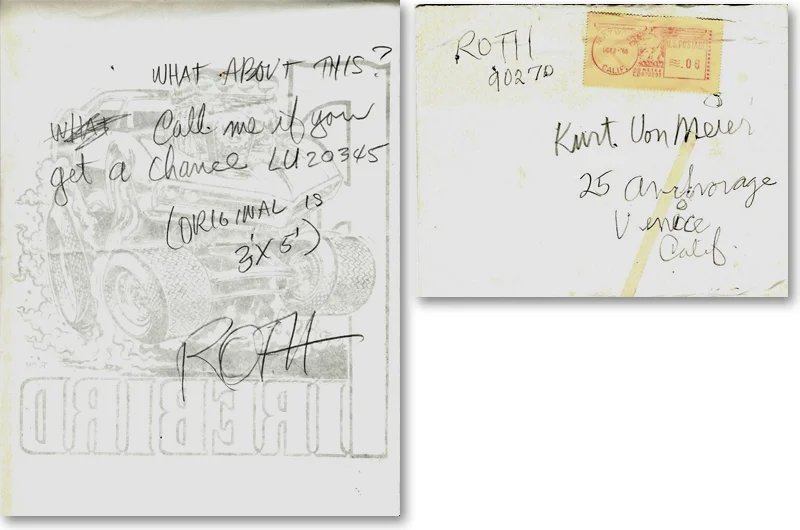 WHAT ABOUT THIS?
WHAT Call me if you
get a chance LU20345
(ORIGINAL IS
3'X5')
ROTH
FIREBIRD
ROTH
90270
CALIF
U.S. POSTAGE
.06
Kurt Von Meier
25 Anchorage
Venice
Calif.